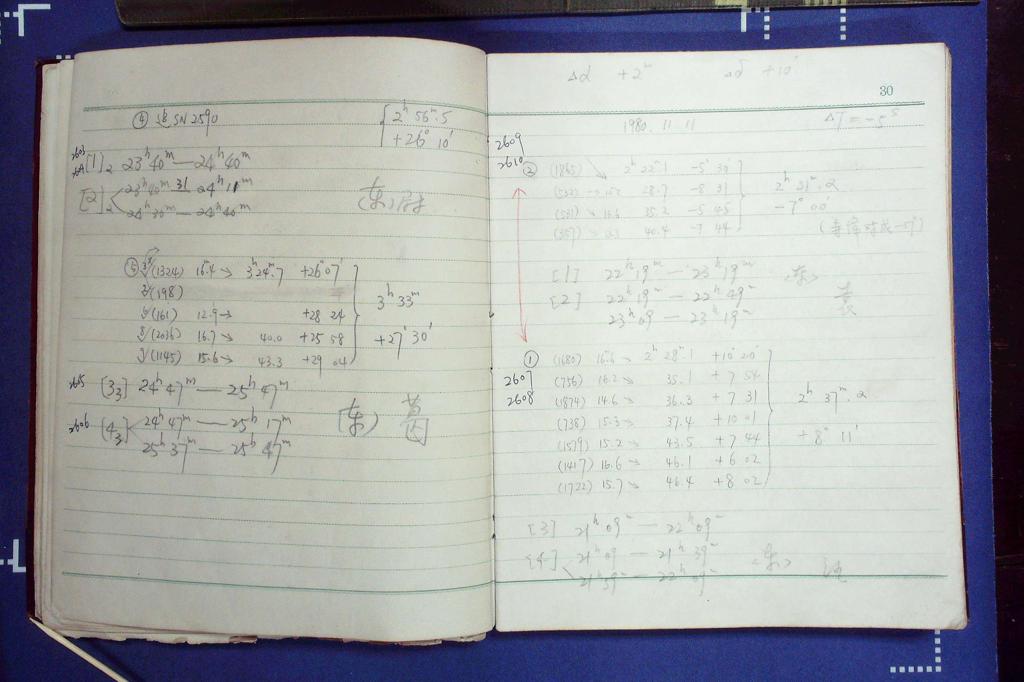 ④ SN 2590
2ʰ 56ᵐ.5
+26° 10′
2603
[1]₂ 23ʰ40ᵐ — 24ʰ40ᵐ
[2]₂ 23ʰ40ᵐ 31 24ʰ11ᵐ
24ʰ30ᵐ — 24ʰ40ᵐ
(东)
⑤ (1324) 16.4 → 3ʰ24ᵐ.7 +26°07′
(198)
(161) 12.9 → +28 24
(2036) 16.7 → 40.0 +25 58
(1145) 15.6 → 43.3 +29 04
3ʰ 33ᵐ
+27° 30′
2605 [3₃] 24ʰ47ᵐ — 25ʰ47ᵐ
2606 [4₃] 24ʰ47ᵐ — 25ʰ17ᵐ
25ʰ37ᵐ — 25ʰ47ᵐ
(东) 黄
Δα +2ᵐ Δδ +10′
30
1980. 11. 11
ΔT = -5ˢ
2609
2610
② (1865) 2ʰ 22ᵐ.1 -5° 30′
28.7 -8 31
35.2 -5 45
40.4 -7 44
2ʰ 31ᵐ.2
-7° 00′
[1] 22ʰ19ᵐ — 23ʰ19ᵐ <东>
[2] 22ʰ19ᵐ — 22ʰ49ᵐ
23ʰ09 — 23ʰ19ᵐ
①
2607
2608
(1680) 16.6 → 2ʰ 28ᵐ.1 +10° 20′
(756) 16.2 → 35.1 +7 54
(1874) 14.6 → 36.3 +7 31
(738) 15.3 → 37.4 +10 01
(1579) 15.2 → 43.5 +7 44
(1417) 16.6 → 46.1 +6 02
(1722) 15.7 → 46.4 +8 02
2ʰ 37ᵐ.2
+8° 11′
[3] 21ʰ09ᵐ — 22ʰ09ᵐ
[4] 21ʰ09 — 21ʰ39ᵐ <东>
21ʰ59ᵐ — 22ʰ09ᵐ